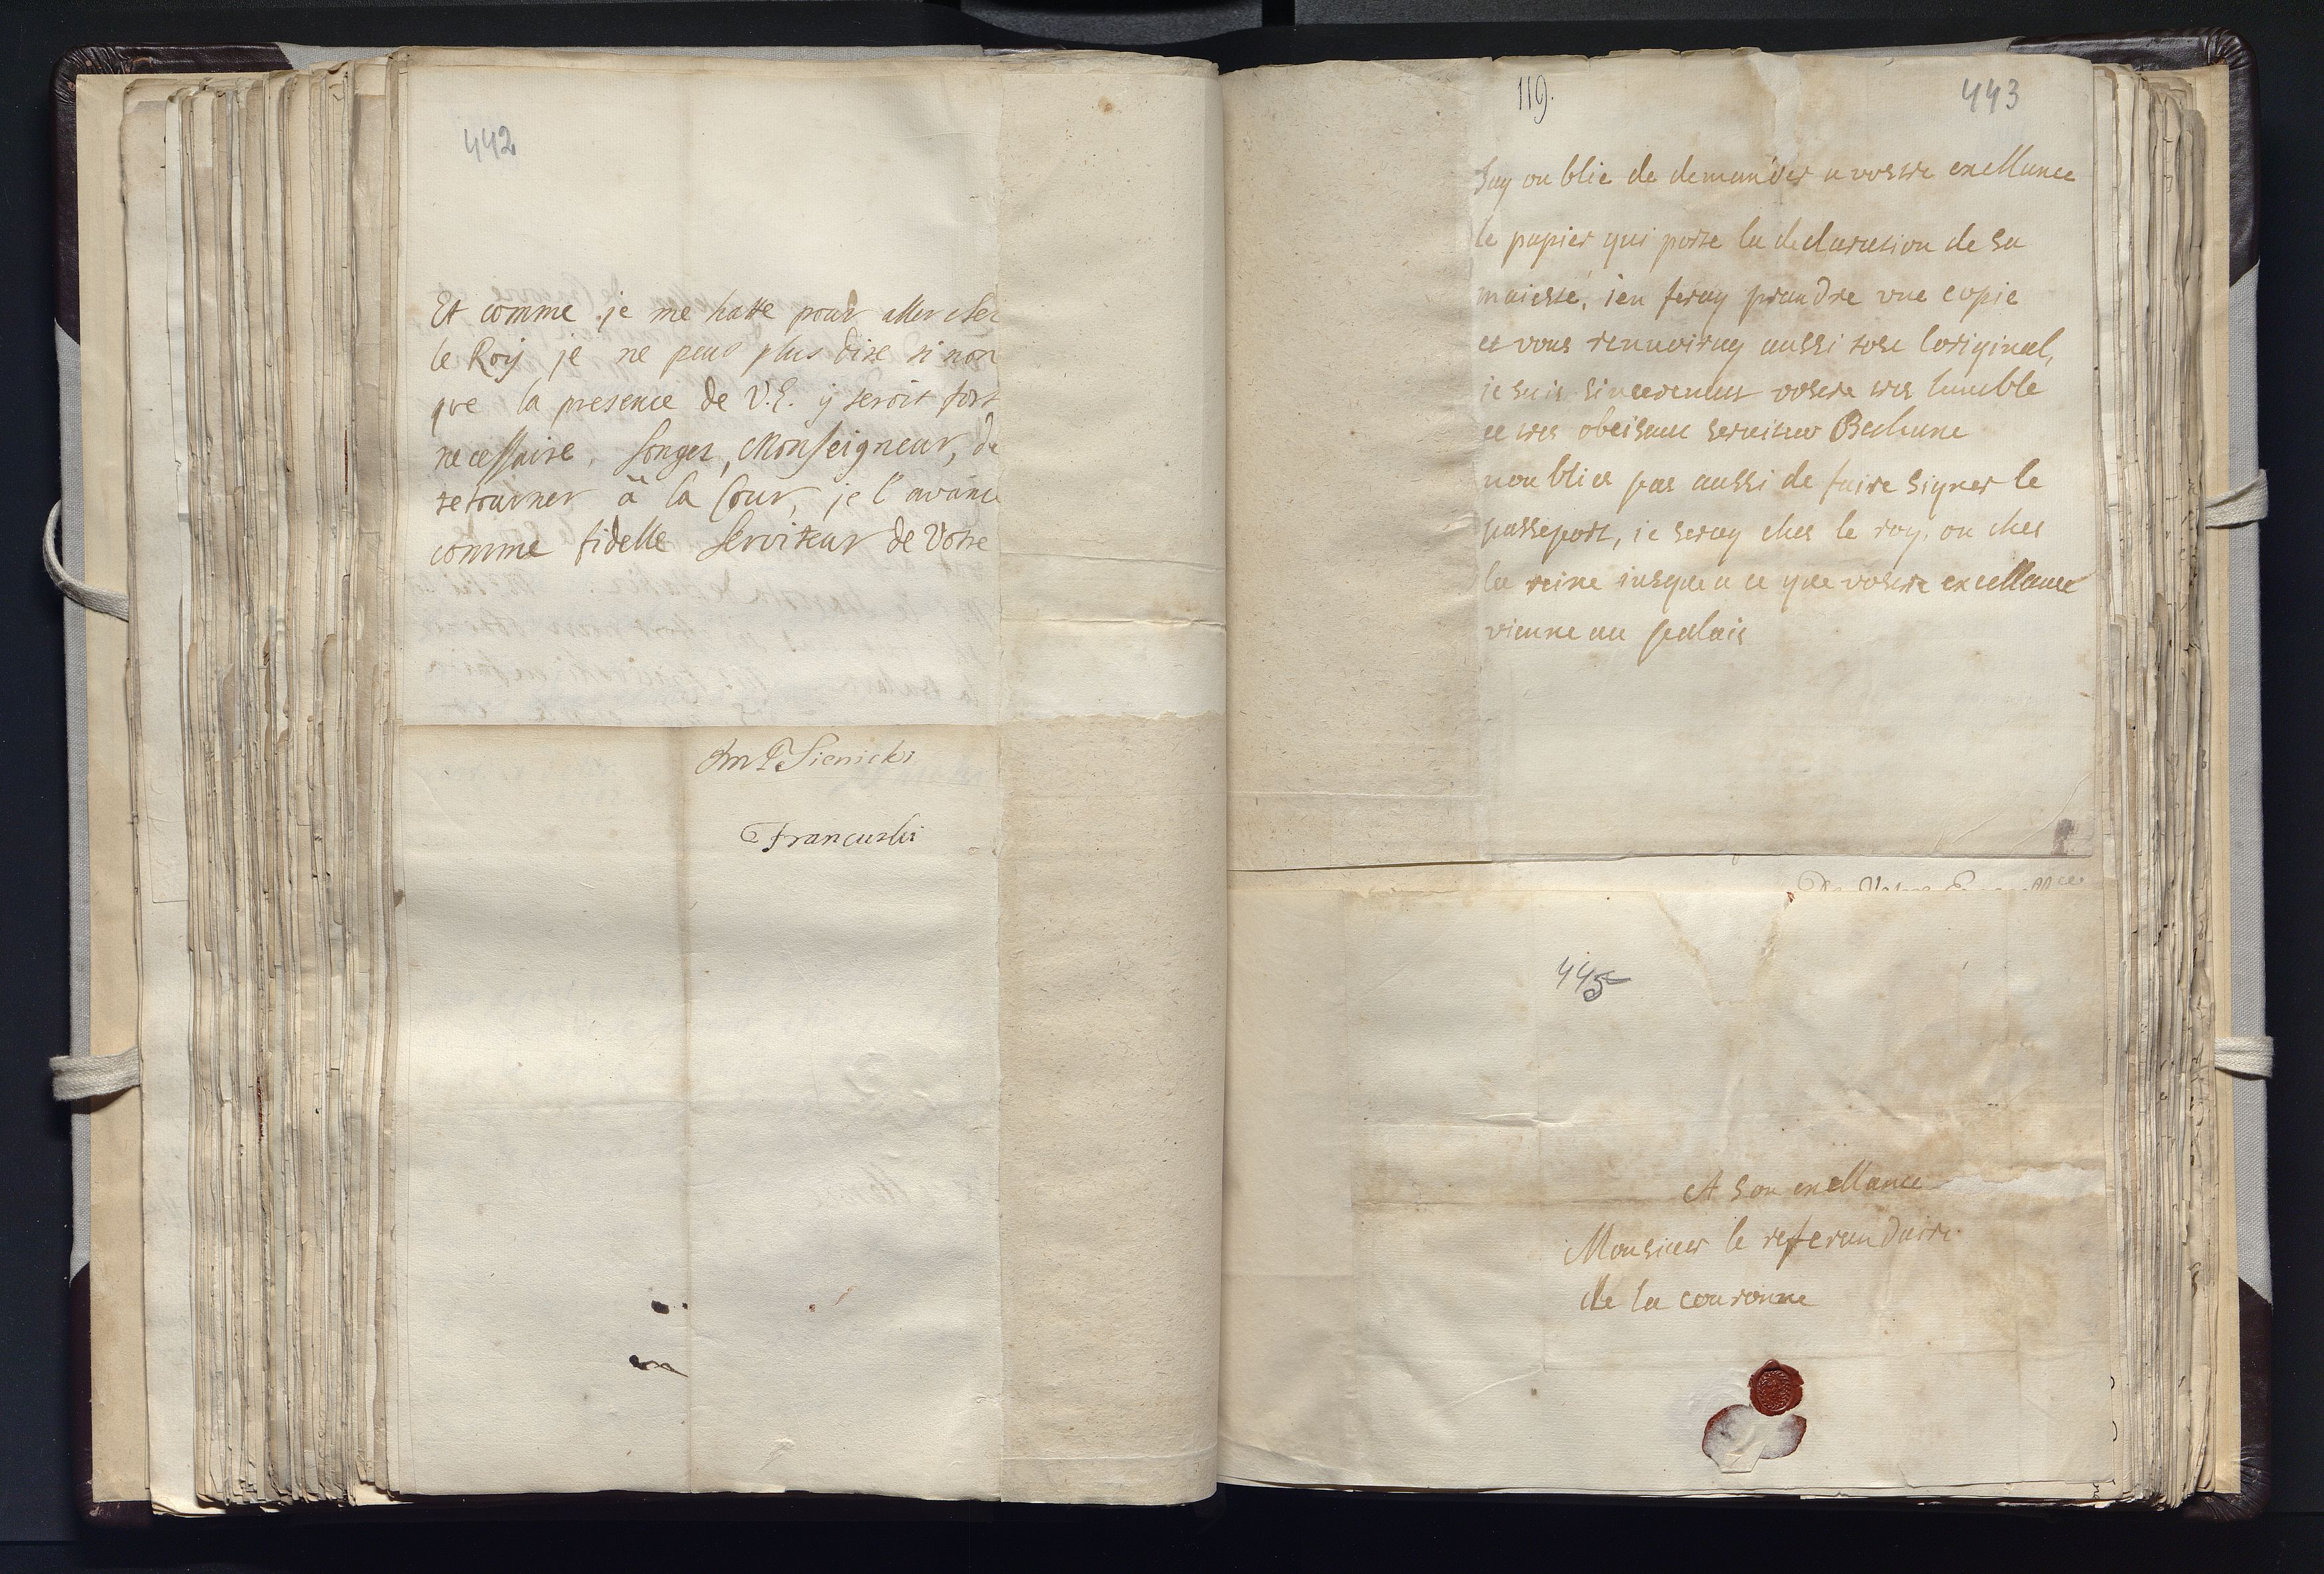 442
Et comme je me hatte pour aller cher
le Roy je ne peus plus dire si non
que la presence de V.E. y seroit fort
necessaire, songer, Monseigneur, de
retourner à la Cour, je l'avance
comme fidelle serviteur de Votre
Sienicki
Francuski
119.
443
Jay oublie de demander a vostre exellance
le papier qui porte la declaration de sa
maiesté, ien feray prandre une copie
et vous renuoiray aussi tost loriginal,
je suis sincerement vostre tres humble
et tres obeisant seruiteur Bethune
noublies pas aussi de faire signer le
passeport, ie seray ches le roy, ou ches
la reine iusque a ce que vostre excellance
vienne au palais
445
A son exellance
Monsieur le referandaire
de la couronne